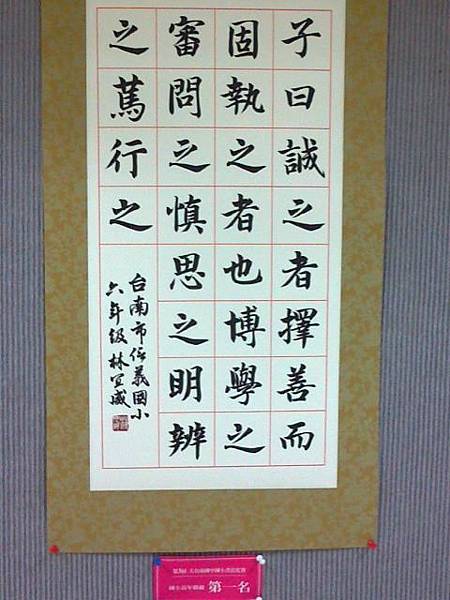 子曰誠之者擇善而
固執之者也博學之
審問之慎思之明辨
之篤行之
台南市依義國小
六年級林宜威
第一名